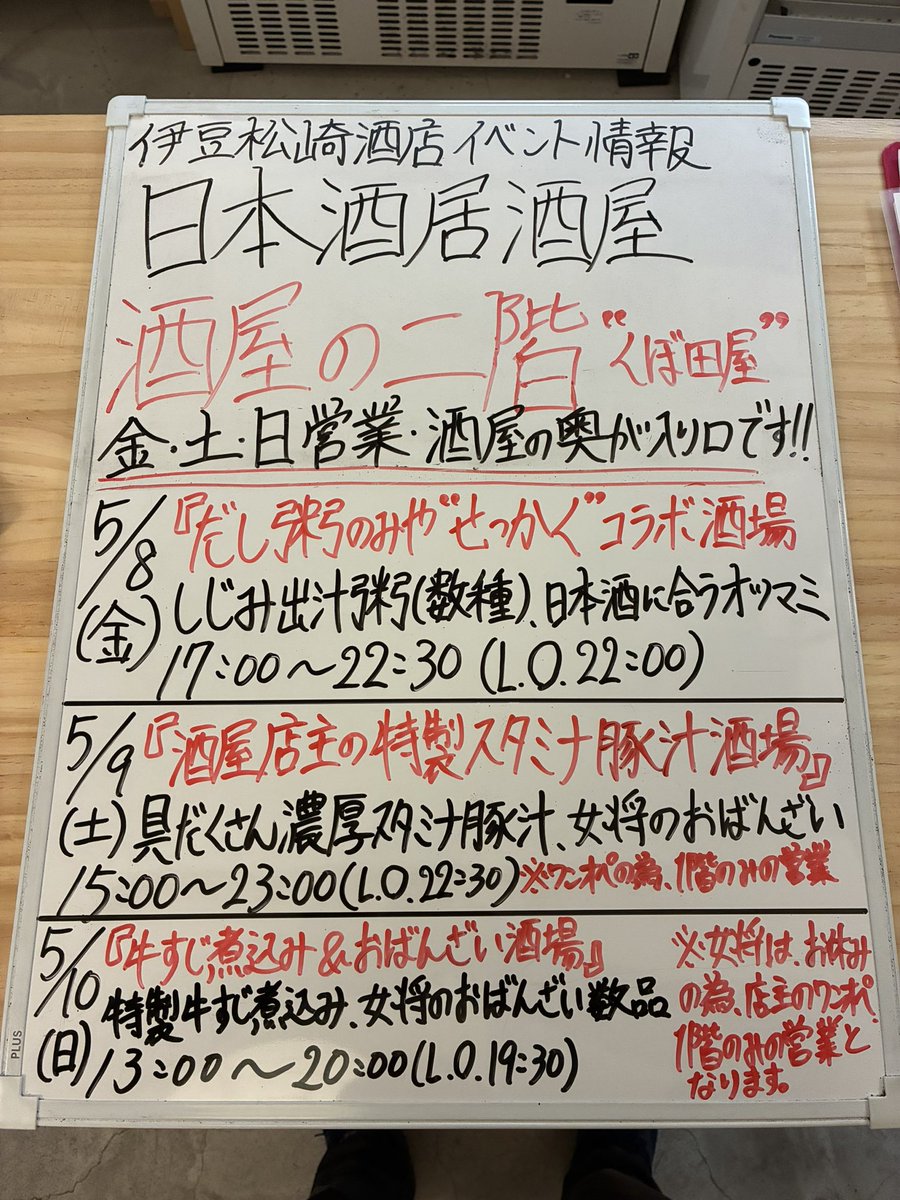 伊豆松崎酒店イベント情報
日本酒居酒屋
酒屋の二階“くぼ田屋”
金・土・日営業・酒屋の奥が入り口です!!
5/8
(金)
『だし粥のみや“せっかく”コラボ酒場
しじみ出汁粥(数種)、日本酒に合うオツマミ
17:00〜22:30 (L.O.22:00)
5/9
(土)
『酒屋店主の特製スタミナ豚汁酒場』
具だくさん濃厚スタミナ豚汁、女将のおばんざい
15:00〜23:00(L.O.22:30)※ワンオペの為、1階のみの営業
5/10
(日)
『牛すじ煮込み&おばんざい酒場』
特製牛すじ煮込み、女将のおばんざい数品
13:00〜20:00(L.O.19:30)
※女将は、お休み
の為、店主のワンオペ、
1階のみの営業と
なります。
PLUS
Panasonic